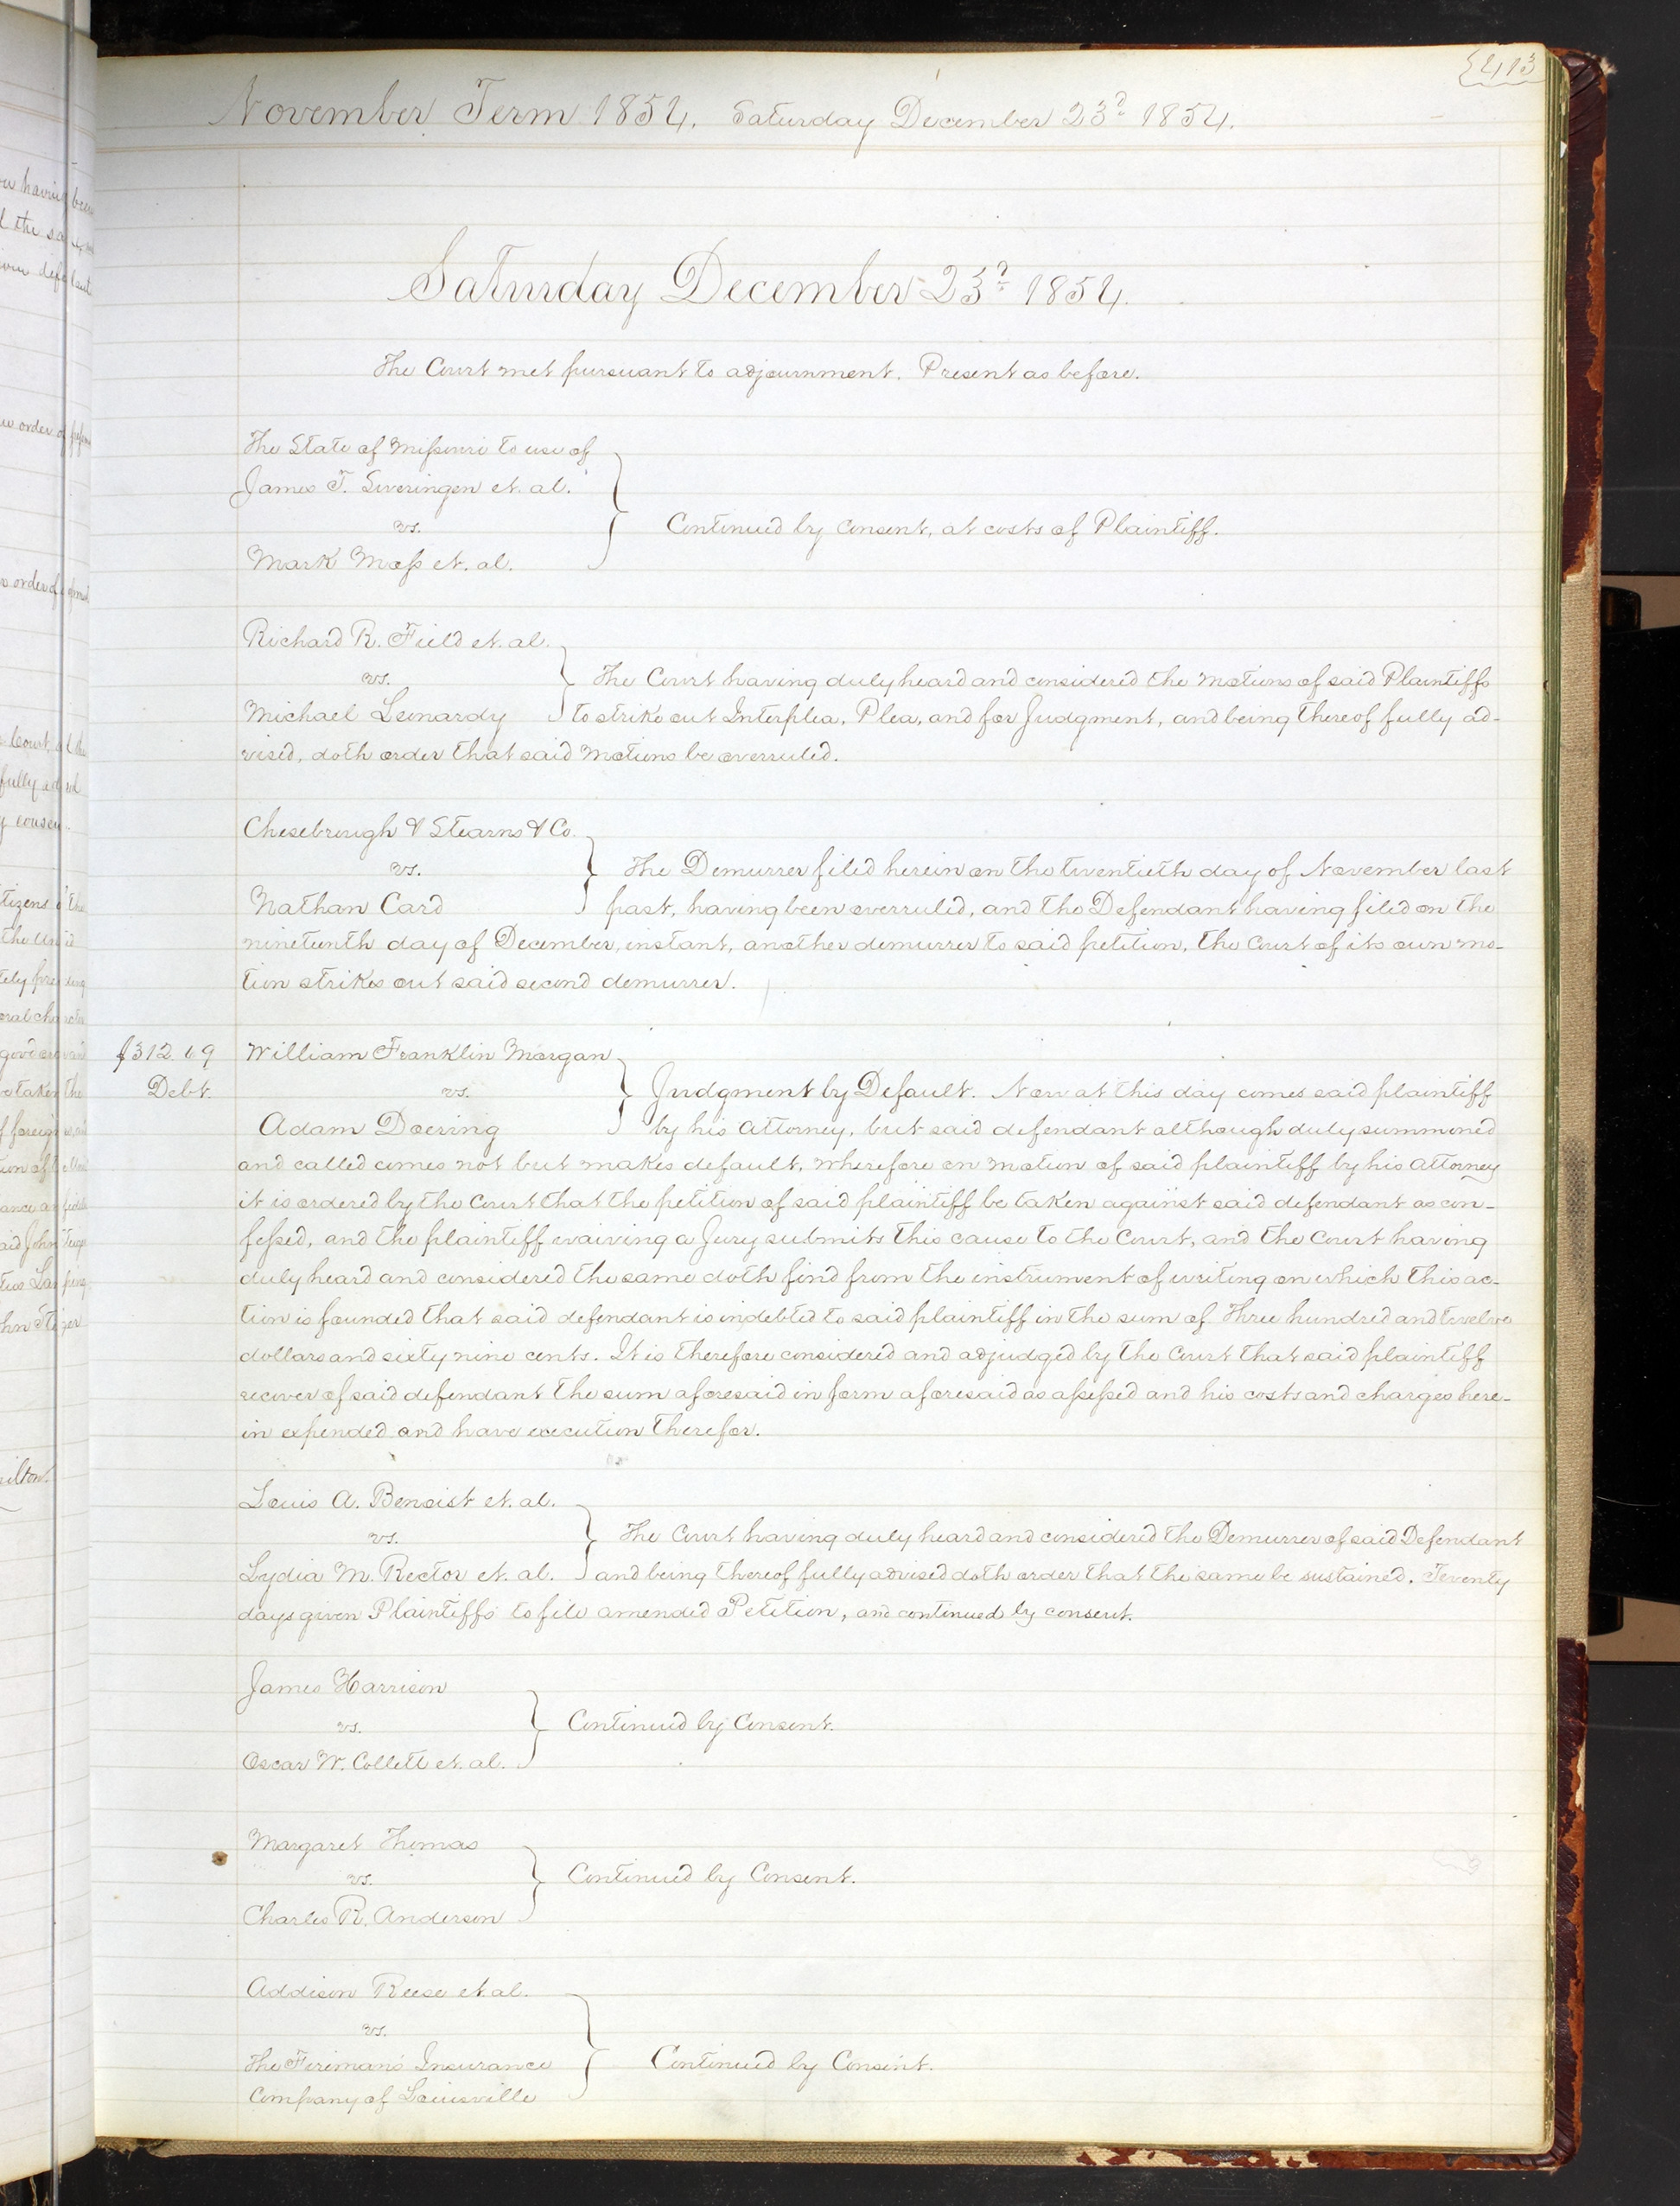 413
November Term 1854. Saturday December 23d 1854.
Saturday December 23d 1854.
The Court met pursuant to adjournment. Present as before.
The State of Missouri to use of
James T. Sweringen et. al.
vs.
Mark Moss et. al.
Continued by Consent, at costs of Plaintiff.
Richard R. Field et. al.
vs. The Court having duly heard and considered the Motions of said Plaintiffs
Michael Leonardy to strike out Interplea, Plea, and for Judgment, and being thereof fully ad-
vised, doth order that said Motions be overruled.
Chesebrough & Stearns & Co.
vs. The Demurrer filed herein on the twentieth day of November last
Nathan Card past, having been overruled, and the Defendant having filed on the
nineteenth day of December, instant, another demurrer to said petition, the Court of its own mo-
tion strikes out said second demurrer.
$312.69 William Franklin Morgan
Debt. vs. Judgment by Default. Now at this day comes said plaintiff
Adam Doering by his Attorney, but said defendant although duly summoned
and called comes not but makes default, wherefore on motion of said plaintiff by his Attorney
it is ordered by the Court that the petition of said plaintiff be taken against said defendant as con-
fessed, and the plaintiff waiving a Jury submits this cause to the Court, and the Court having
duly heard and considered the same doth find from the instrument of writing on which this ac-
tion is founded that said defendant is indebted to said plaintiff in the sum of Three hundred and twelve
dollars and sixty nine cents. It is therefore considered and adjudged by the Court that said plaintiff
recover of said defendant the sum aforesaid in form aforesaid as assessed and his costs and charges here-
in expended and have execution therefor.
Louis A. Benoist et. al.
vs. The Court having duly heard and considered the Demurrer of said Defendant
Lydia M. Rector et. al. and being thereof fully advised doth order that the same be sustained. Twenty
days given Plaintiffs to file amended Petition, and continued by consent.
James Harrison
vs. Continued by Consent.
Oscar W. Collett et. al.
Margaret Thomas
vs. Continued by Consent.
Charles R. Anderson
Addison Reese et al.
vs.
The Fireman's Insurance Continued by Consent.
Company of Louisville